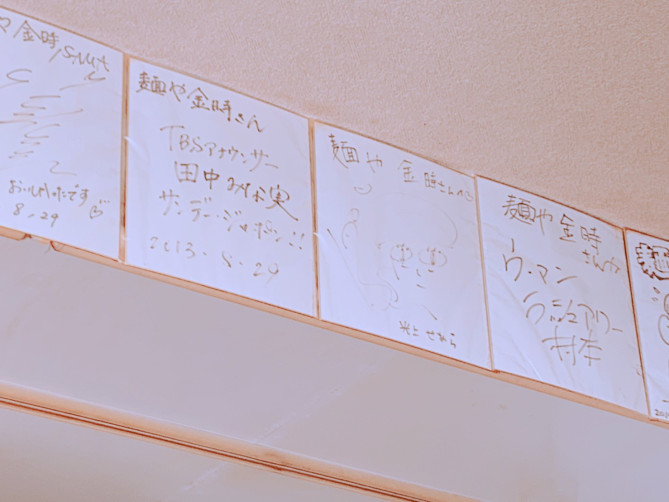 や金時
おいしかったです
8.29
麺や金時さん
TBSアナウンサー
田中みな実
サンデー・ジャポン!!
2013.8.29
麺や金時さんへ
光上せあら
麺や金時
さんへ
ウーマン
ラッシュアワー
村本
麺